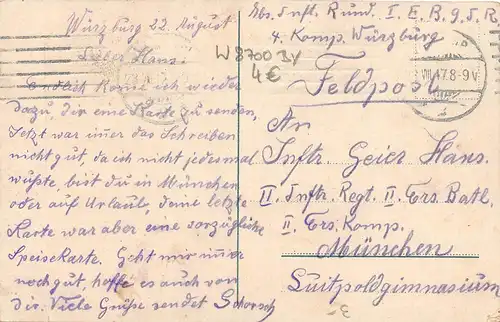 Würzburg 22. August
Lieber Hans.
Endlich kome ich wieder
dazu, dir eine Karte zu senden,
Jetzt war imer das Schreiben
nicht gut, da ich nicht jedesmal
wußte, bist du in München
oder auf Urlaub, deine letzte
Karte war aber eine vorzügliche
Speisekarte. Geht mir imer
noch gut, hoffe es auch von
dir. Viele Grüße sendet Schorsch
W 8700 BY
4€
Abs. Inft. Rund. I. E. B. 9. J. R.
4. Komp. Würzburg
8-9V
Feldpost
An
Inftr. Geier Hans.
II. Inftr. Regt. II. Ers. Batl.
II. Ers. Komp.
München
Luitpoldgimnasium